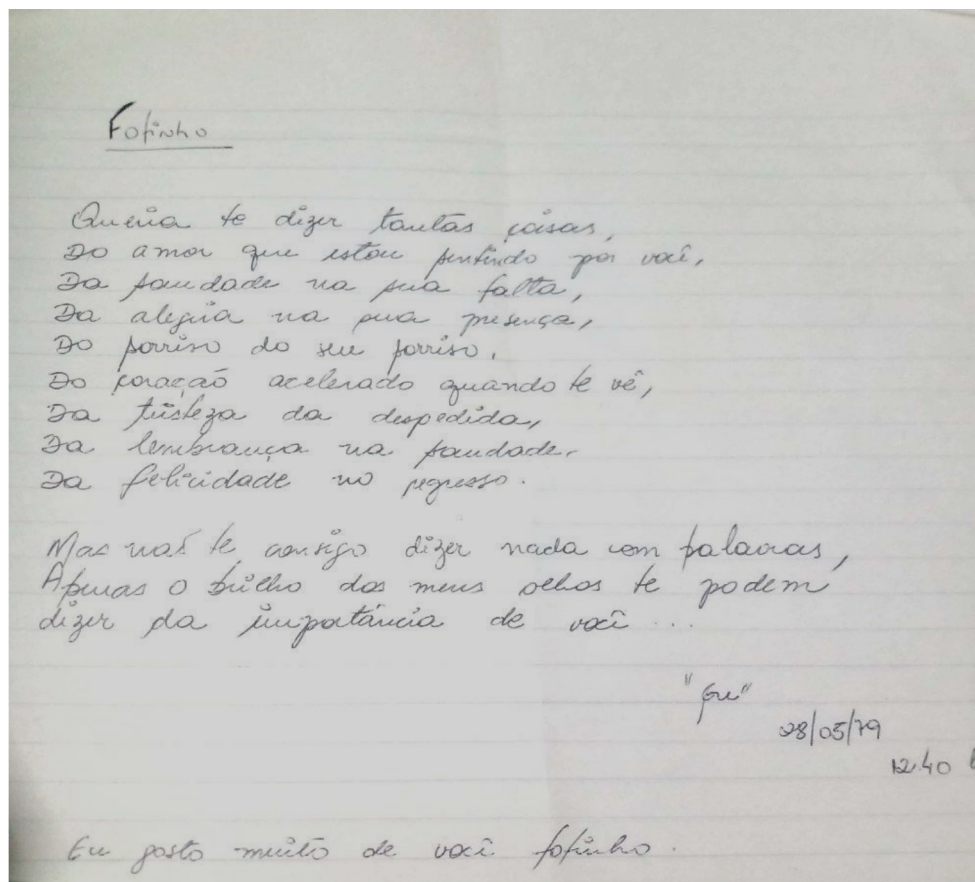 Fofinho
Queria te dizer tantas coisas,
Do amor que estou sentindo por você,
Da saudade na sua falta,
Da alegria na sua presença,
Do sorriso do seu sorriso,
Do coração acelerado quando te vê,
Da tristeza da despedida,
Da lembrança na saudade,
Da felicidade no regresso.
Mas não te consigo dizer nada com palavras,
Apenas o brilho dos meus olhos te podem
dizer da importância de você ...
28/05/79
12:40
Eu gosto muito de você fofinho.